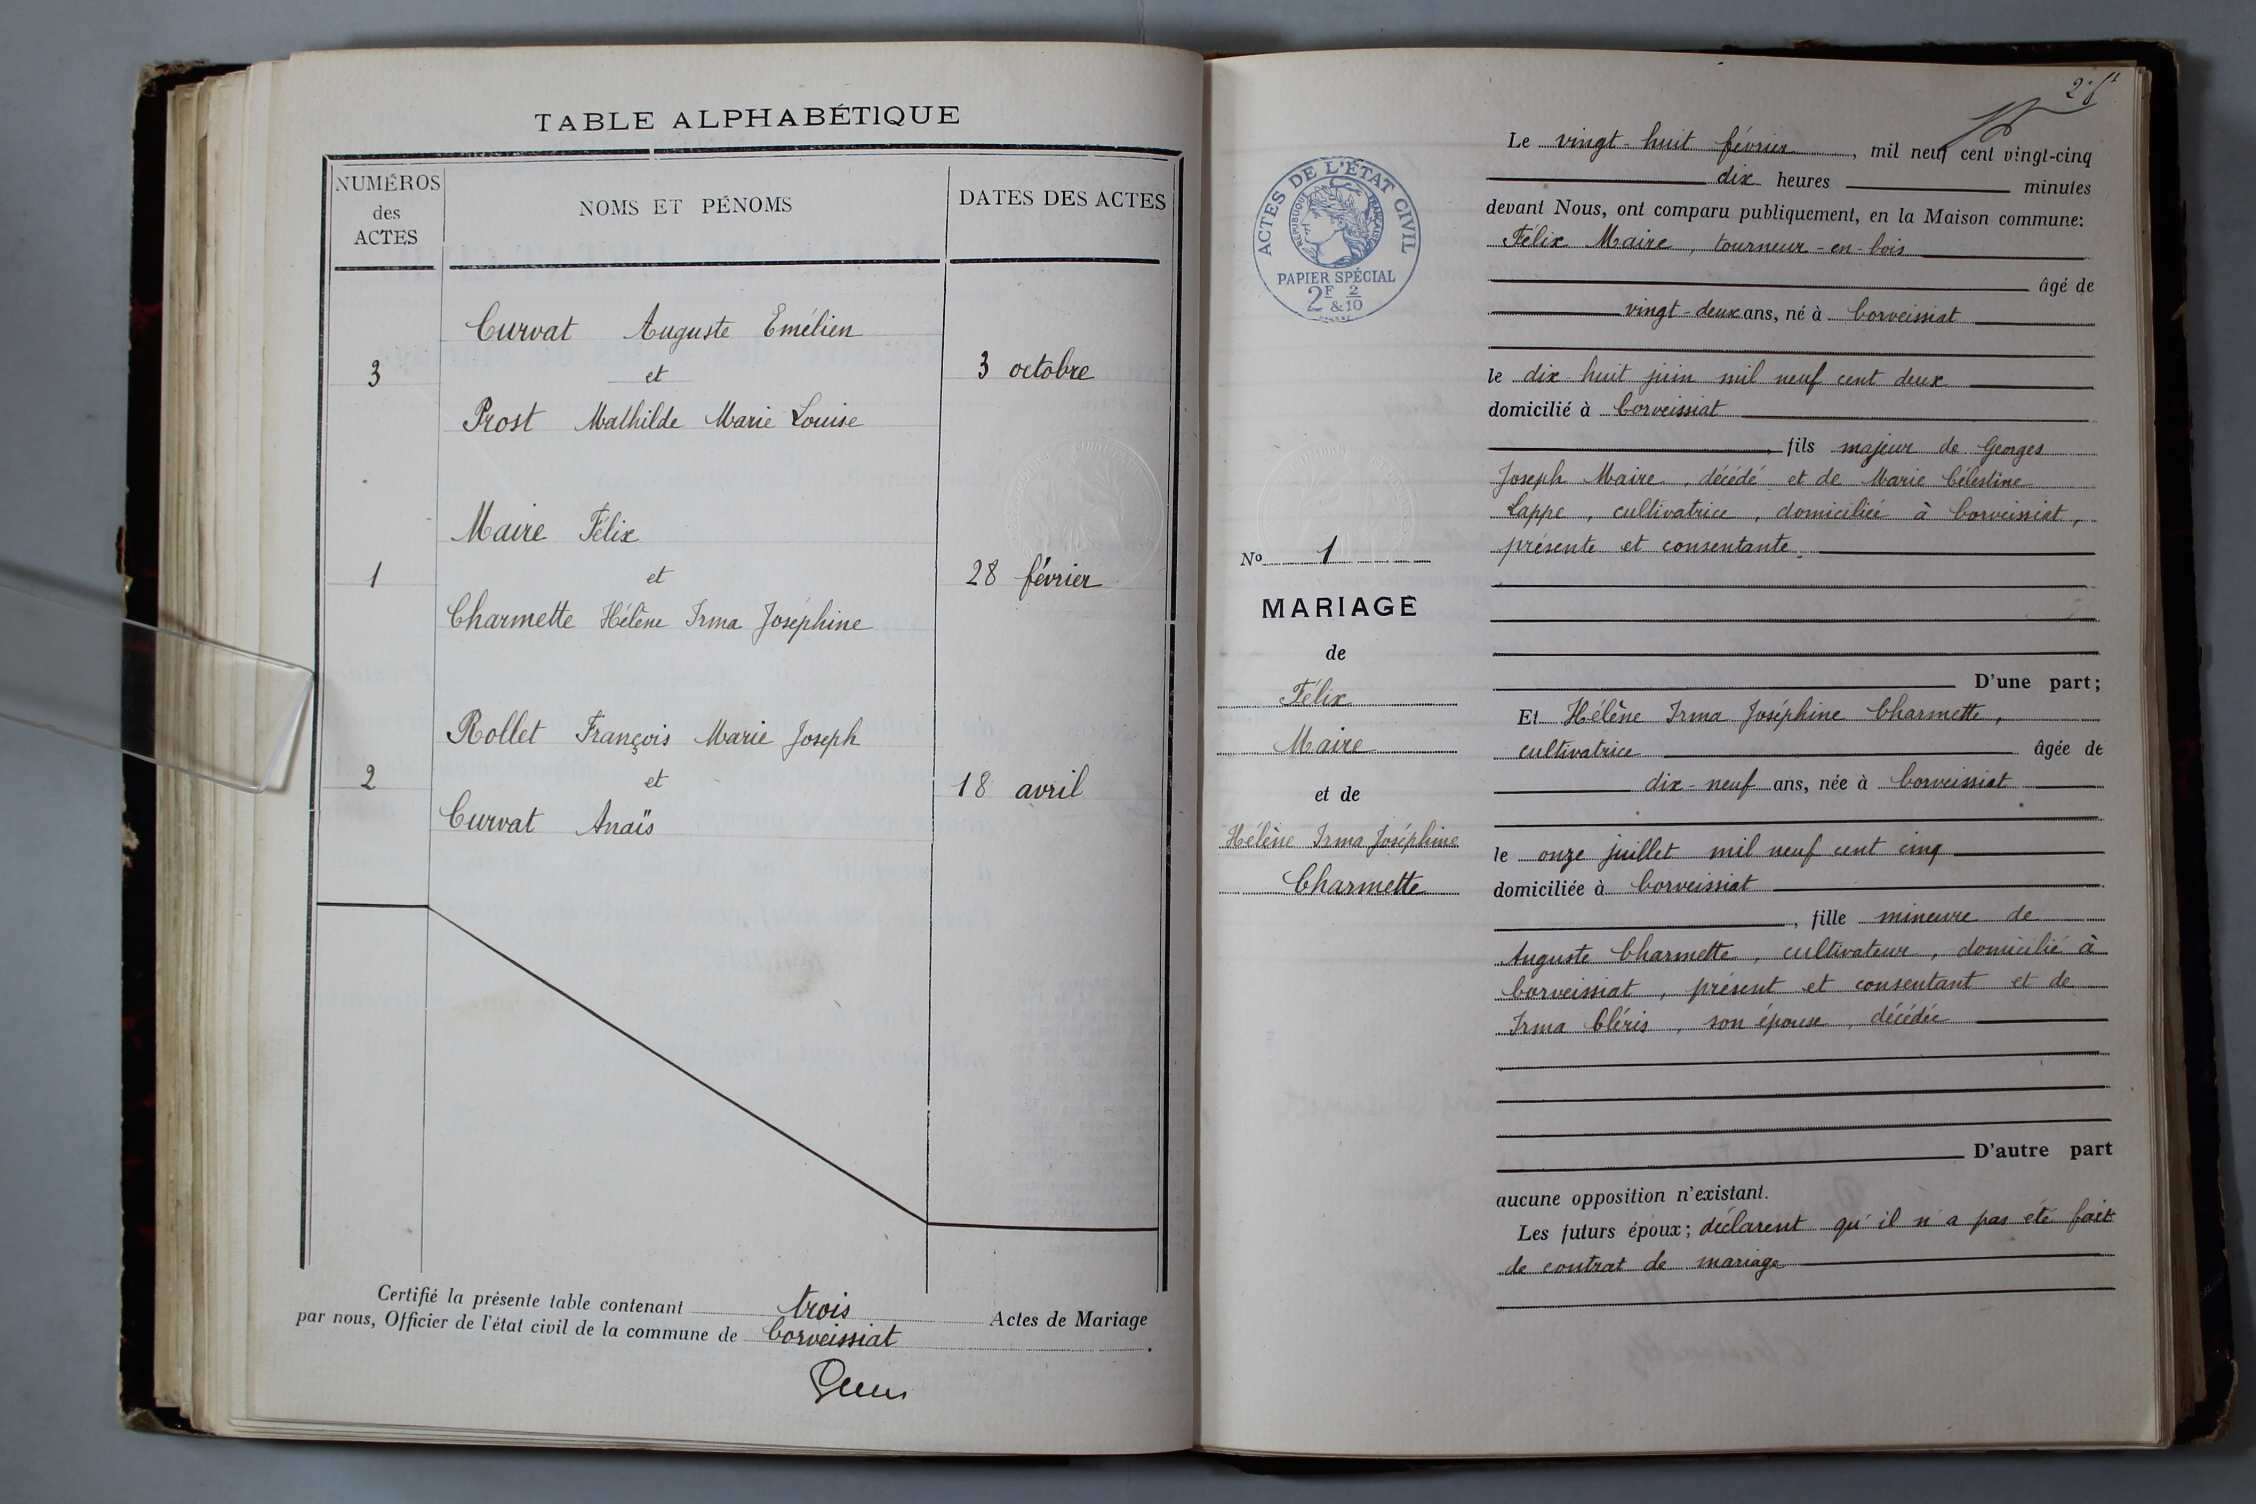 TABLE ALPHABÉTIQUE
NUMÉROS
des
ACTES
NOMS ET PÉNOMS
DATES DES ACTES
Curvat Auguste Emélien
3 et 3 octobre
Prost Mathilde Marie Louise
Maire Félix
1 et 28 février
Charmette Hélène Irma Joséphine
Rollet François Marie Joseph
2 et 18 avril
Curvat Anaïs
Certifié la présente table contenant trois Actes de Mariage
par nous, Officier de l'état civil de la commune de Corveissiat.
ACTES DE L'ÉTAT CIVIL
RÉPUBLIQUE FRANÇAISE
PAPIER SPÉCIAL
2F & 2/10
No 1
MARIAGE
de
Félix
Maire
et de
Hélène Irma Joséphine
Charmette
Le vingt-huit février, mil neuf cent vingt-cinq
dix heures minutes
devant Nous, ont comparu publiquement, en la Maison commune:
Félix Maire, tourneur-en-bois
âgé de
vingt-deux ans, né à Corveissiat
le dix-huit juin mil neuf cent deux
domicilié à Corveissiat
, fils majeur de Georges
Joseph Maire, décédé et de Marie Célestine
Lappe, cultivatrice, domiciliée à Corveissiat,
présente et consentante.
D'une part;
Et Hélène Irma Joséphine Charmette,
cultivatrice âgée de
dix-neuf ans, née à Corveissiat
le onze juillet mil neuf cent cinq
domiciliée à Corveissiat
, fille mineure de
Auguste Charmette, cultivateur, domicilié à
Corveissiat, présent et consentant et de
Irma Cléris, son épouse, décédée
D'autre part
aucune opposition n'existant.
Les futurs époux; déclarent qu'il n'a pas été fait
de contrat de mariage